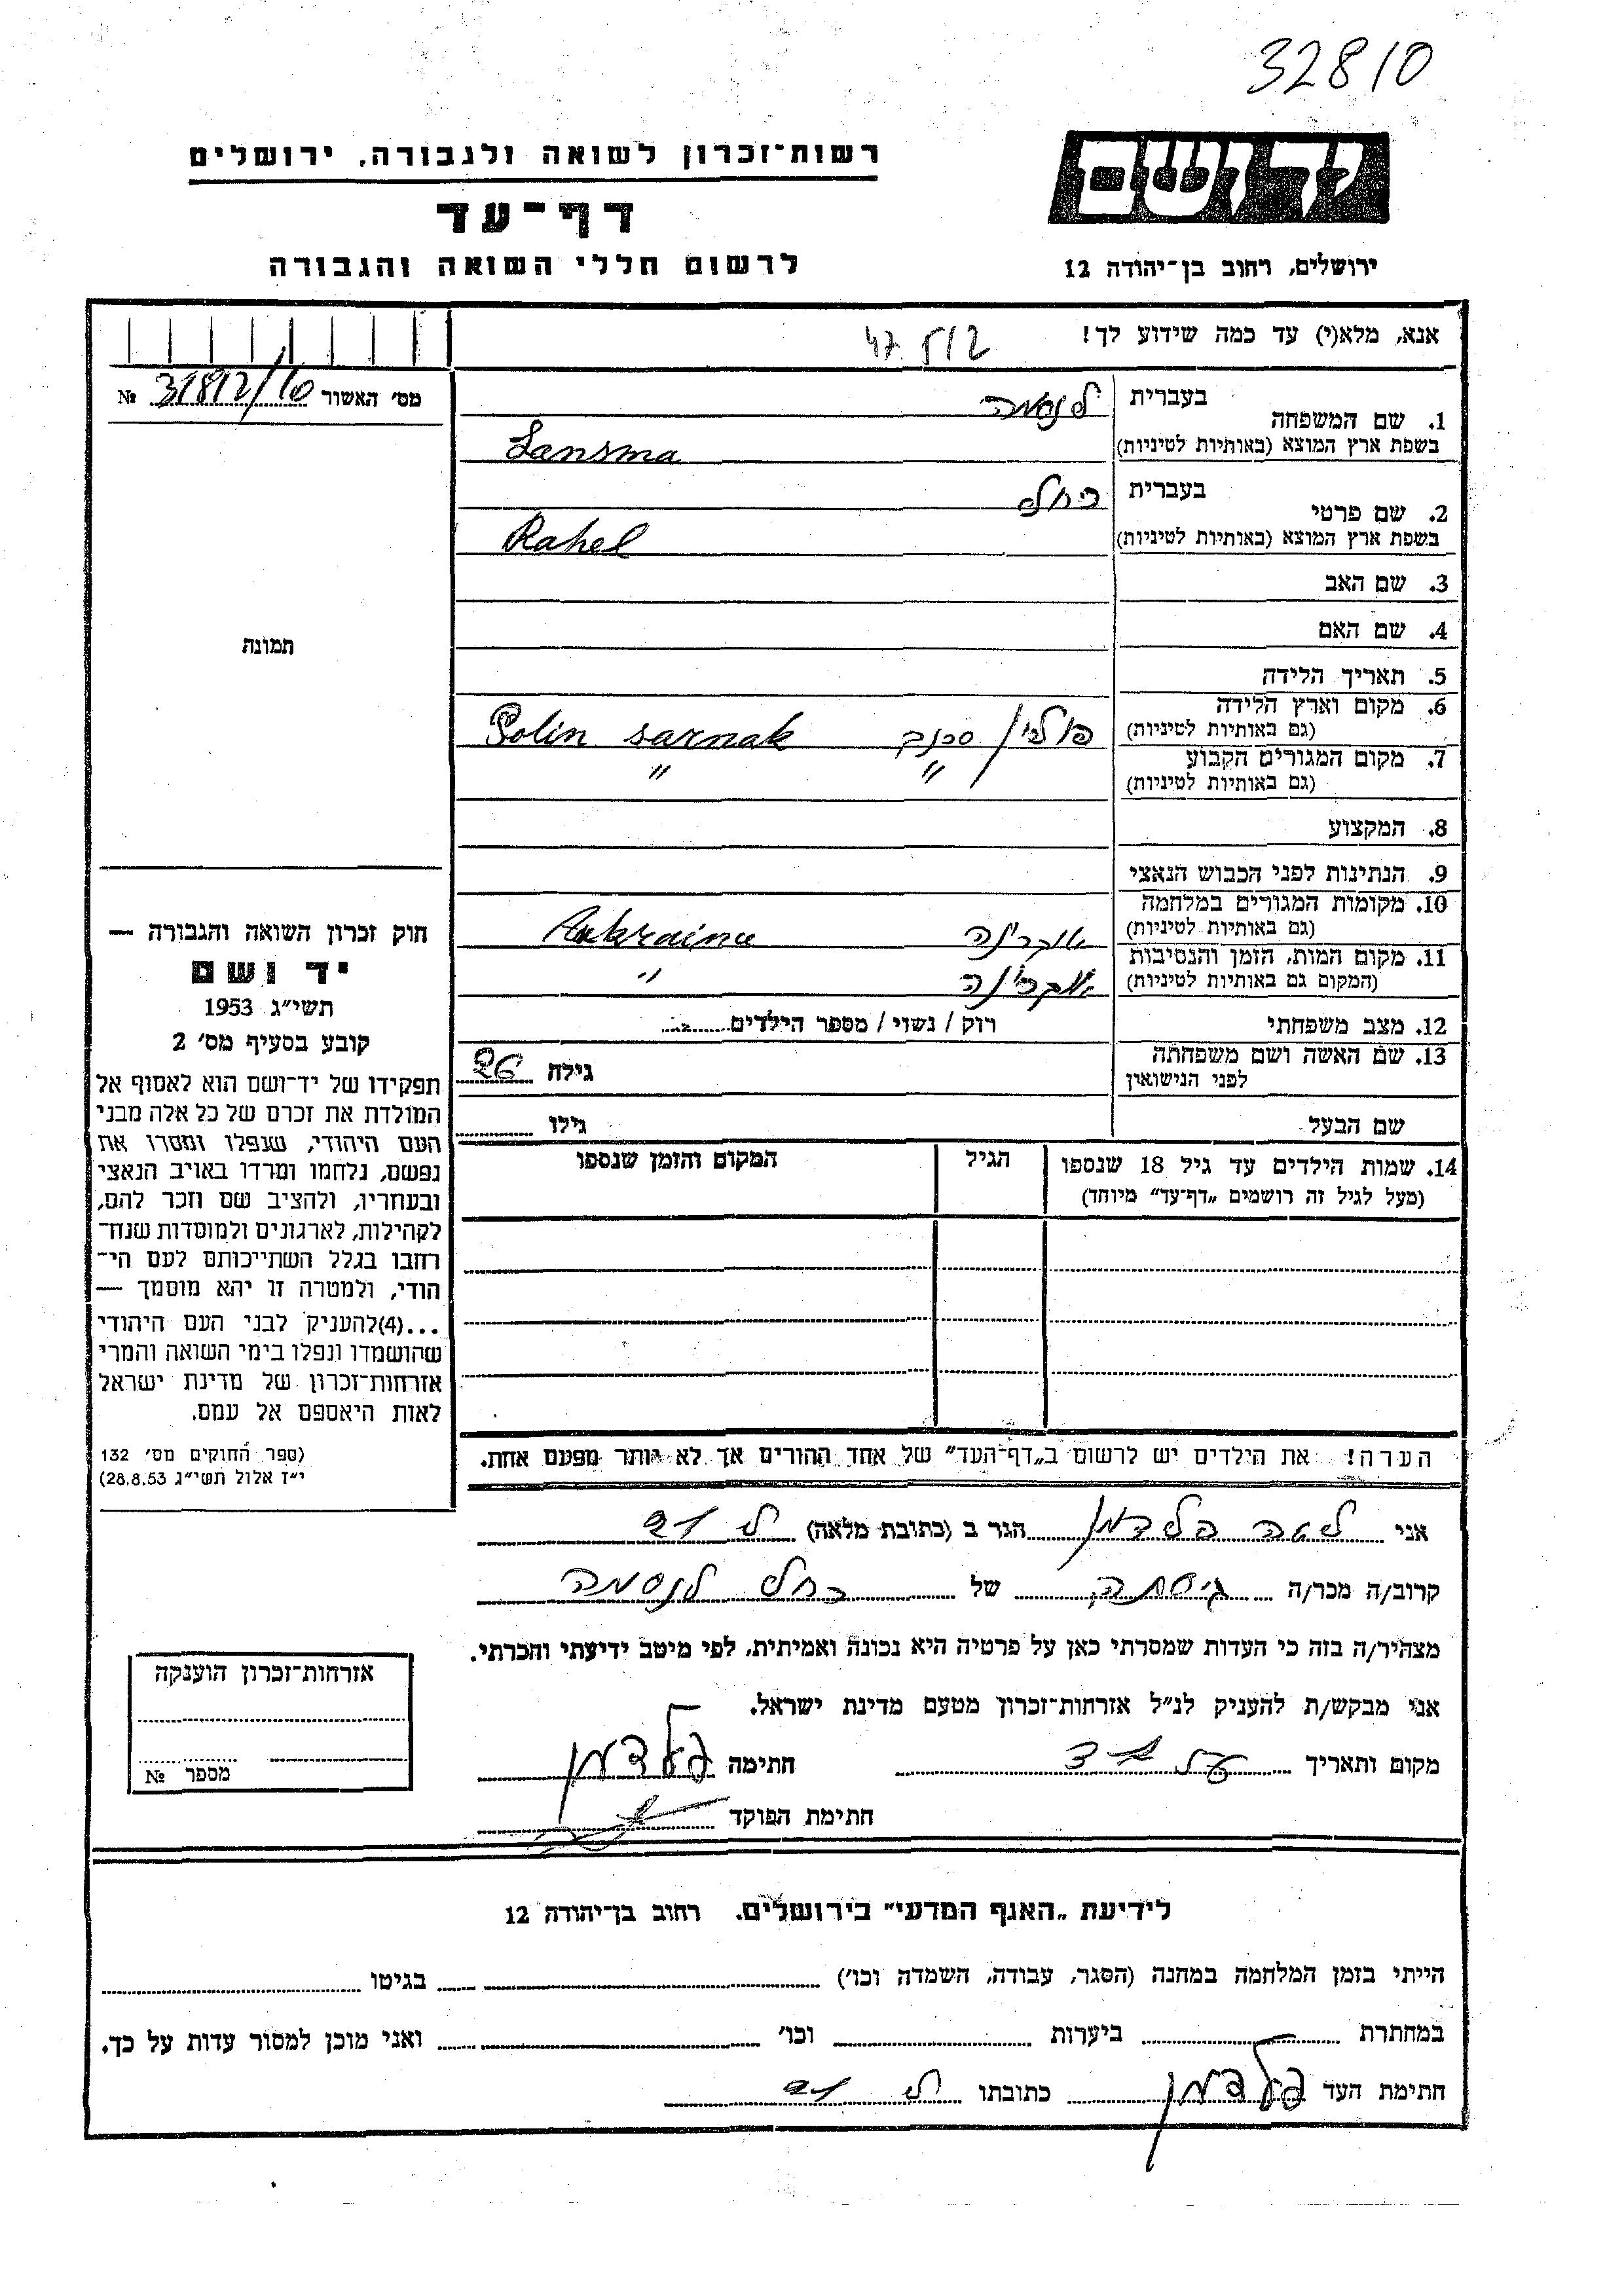 32810
רשות־זכרון לשואה ולגבורה, ירושלים
יד ושם
דף־עד
לרשום חללי השואה והגבורה
ירושלים, רחוב בן־יהודה 12
אנא, מלא(י) עד כמה שידוע לך!
מס׳ האשור 31812/10 №
1. שם המשפחה
בעברית לנסמה
בשפת ארץ המוצא (באותיות לטיניות) Lansma
2. שם פרטי
בעברית רחל
בשפת ארץ המוצא (באותיות לטיניות) Rahel
3. שם האב
4. שם האם
תמונה
5. תאריך הלידה
6. מקום וארץ הלידה
(גם באותיות לטיניות) פולין סרנק Polin sarnak
7. מקום המגורים הקבוע " "
(גם באותיות לטיניות)
8. המקצוע
9. הנתינות לפני הכבוש הנאצי
10. מקומות המגורים במלחמה
(גם באותיות לטיניות) אוקרינה
11. מקום המות, הזמן והנסיבות
(המקום גם באותיות לטיניות) אוקרינה "
12. מצב משפחתי רוק / נשוי / מספר הילדים
13. שם האשה ושם משפחתה
לפני הנישואין גילה 26
שם הבעל גילו
14. שמות הילדים עד גיל 18 שנספו
(מעל לגיל זה רושמים „דף־עד" מיוחד)
הגיל
המקום והזמן שנספו
חוק זכרון השואה והגבורה —
יד ושם
תשי״ג 1953
קובע בסעיף מס׳ 2
תפקידו של יד־ושם הוא לאסוף אל
המולדת את זכרם של כל אלה מבני
העם היהודי, שנפלו ומסרו את
נפשם, נלחמו ומרדו באויב הנאצי
ובעוזריו, ולהציב שם וזכר להם,
לקהילות, לארגונים ולמוסדות שנח־
רחבו בגלל השתייכותם לעם הי־
הודי, ולמטרה זו יהא מוסמך —
...(4)להעניק לבני העם היהודי
שהושמדו ונפלו בימי השואה והמרי
אזרחות־זכרון של מדינת ישראל
לאות היאספם אל עמם.
(ספר החוקים מס׳ 132
י״ז אלול תשי״ג 28.8.53)
הערה! את הילדים יש לרשום ב„דף־העד" של אחד ההורים אך לא יותר מפעם אחת.
אני לאה פלדמן הגר ב (כתובת מלאה)
קרוב/ה מכר/ה גיסתה של רחל לנסמה
מצהיר/ה בזה כי העדות שמסרתי כאן על פרטיה היא נכונה ואמיתית, לפי מיטב ידיעתי והכרתי.
אני מבקש/ת להעניק לנ״ל אזרחות־זכרון מטעם מדינת ישראל.
מקום ותאריך חתימה פלדמן
חתימת הפוקד
אזרחות־זכרון הוענקה
מספר №
לידיעת „האגף המדעי" בירושלים. רחוב בן־יהודה 12
הייתי בזמן המלחמה במחנה (הסגר, עבודה, השמדה וכו׳) בגיטו
במחתרת ביערות וכו׳ ואני מוכן למסור עדות על כך.
חתימת העד פלדמן כתובתו